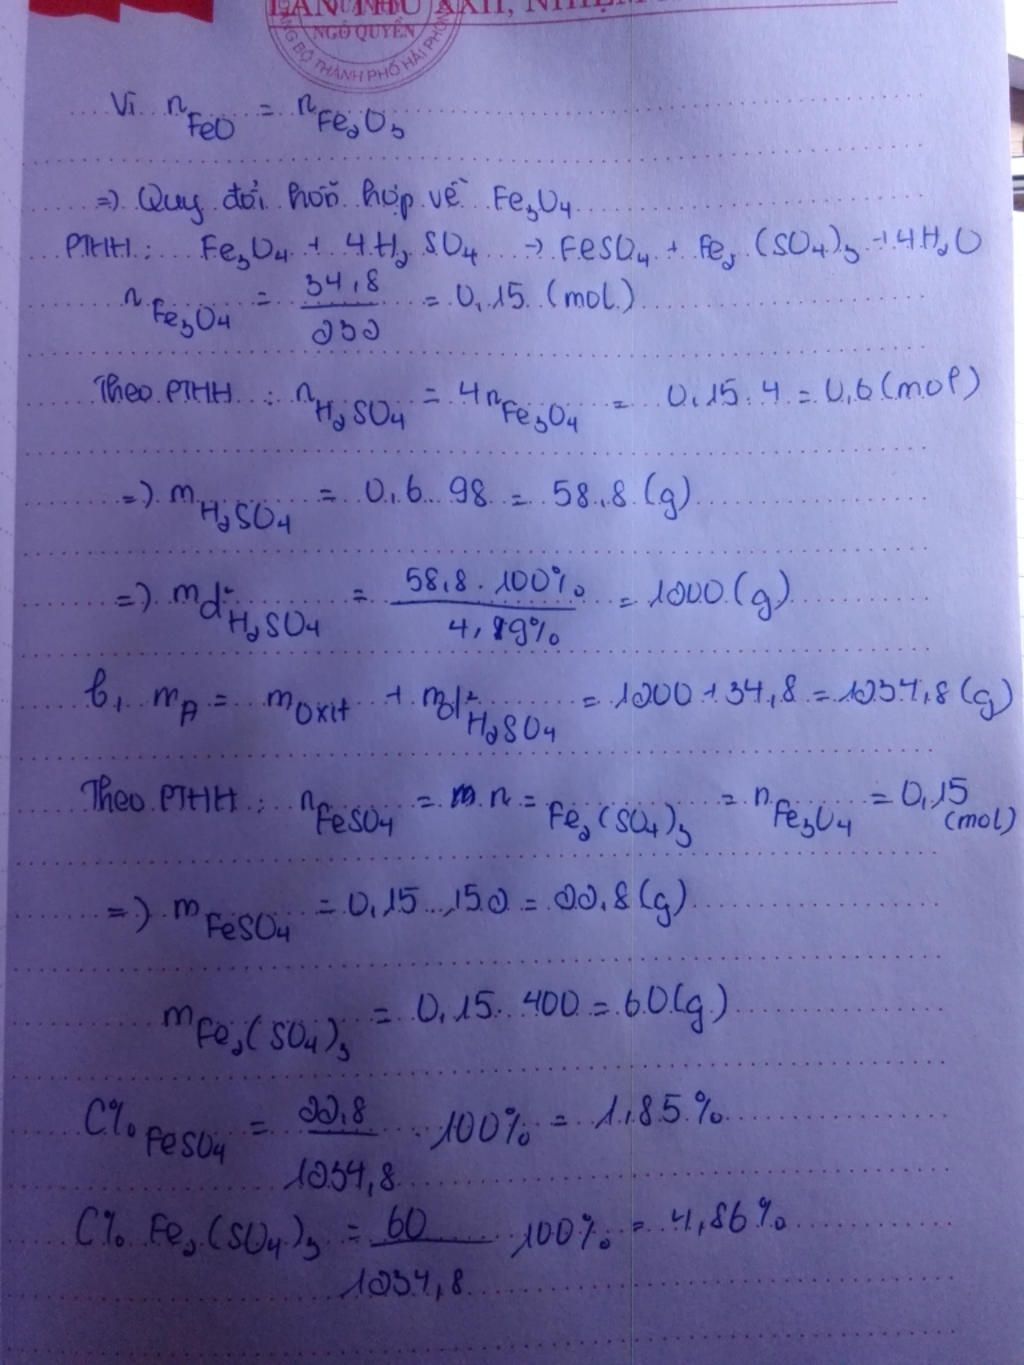 LẦN THỨ XXII, NHIỆM
NGÔ QUYỀN
BỘ THÀNH PHỐ HẢI PHÒNG
Vì n FeO = n Fe2O3
=) Quy đổi hỗn hợp về Fe3O4
PTHH: Fe3O4 + 4H2SO4 → FeSO4 + Fe2(SO4)3 + 4H2O
n Fe3O4 = 34,8 / 232 = 0,15 (mol)
Theo PTHH : n H2SO4 = 4n Fe3O4 = 0,15.4 = 0,6 (mol)
=) m H2SO4 = 0,6.98 = 58,8 (g)
=) md² H2SO4 = 58,8.100% / 4,9% = 1200 (g)
b, m A = m oxit + md² H2SO4 = 1200 + 34,8 = 1234,8 (g)
Theo PTHH: n FeSO4 = n = Fe2(SO4)3 = n Fe3O4 = 0,15 (mol)
=) m FeSO4 = 0,15.152 = 22,8 (g)
m Fe2(SO4)3 = 0,15.400 = 60 (g)
C% FeSO4 = 22,8 / 1234,8 . 100% = 1,85%
C% Fe2(SO4)3 = 60 / 1234,8 100% = 4,86%